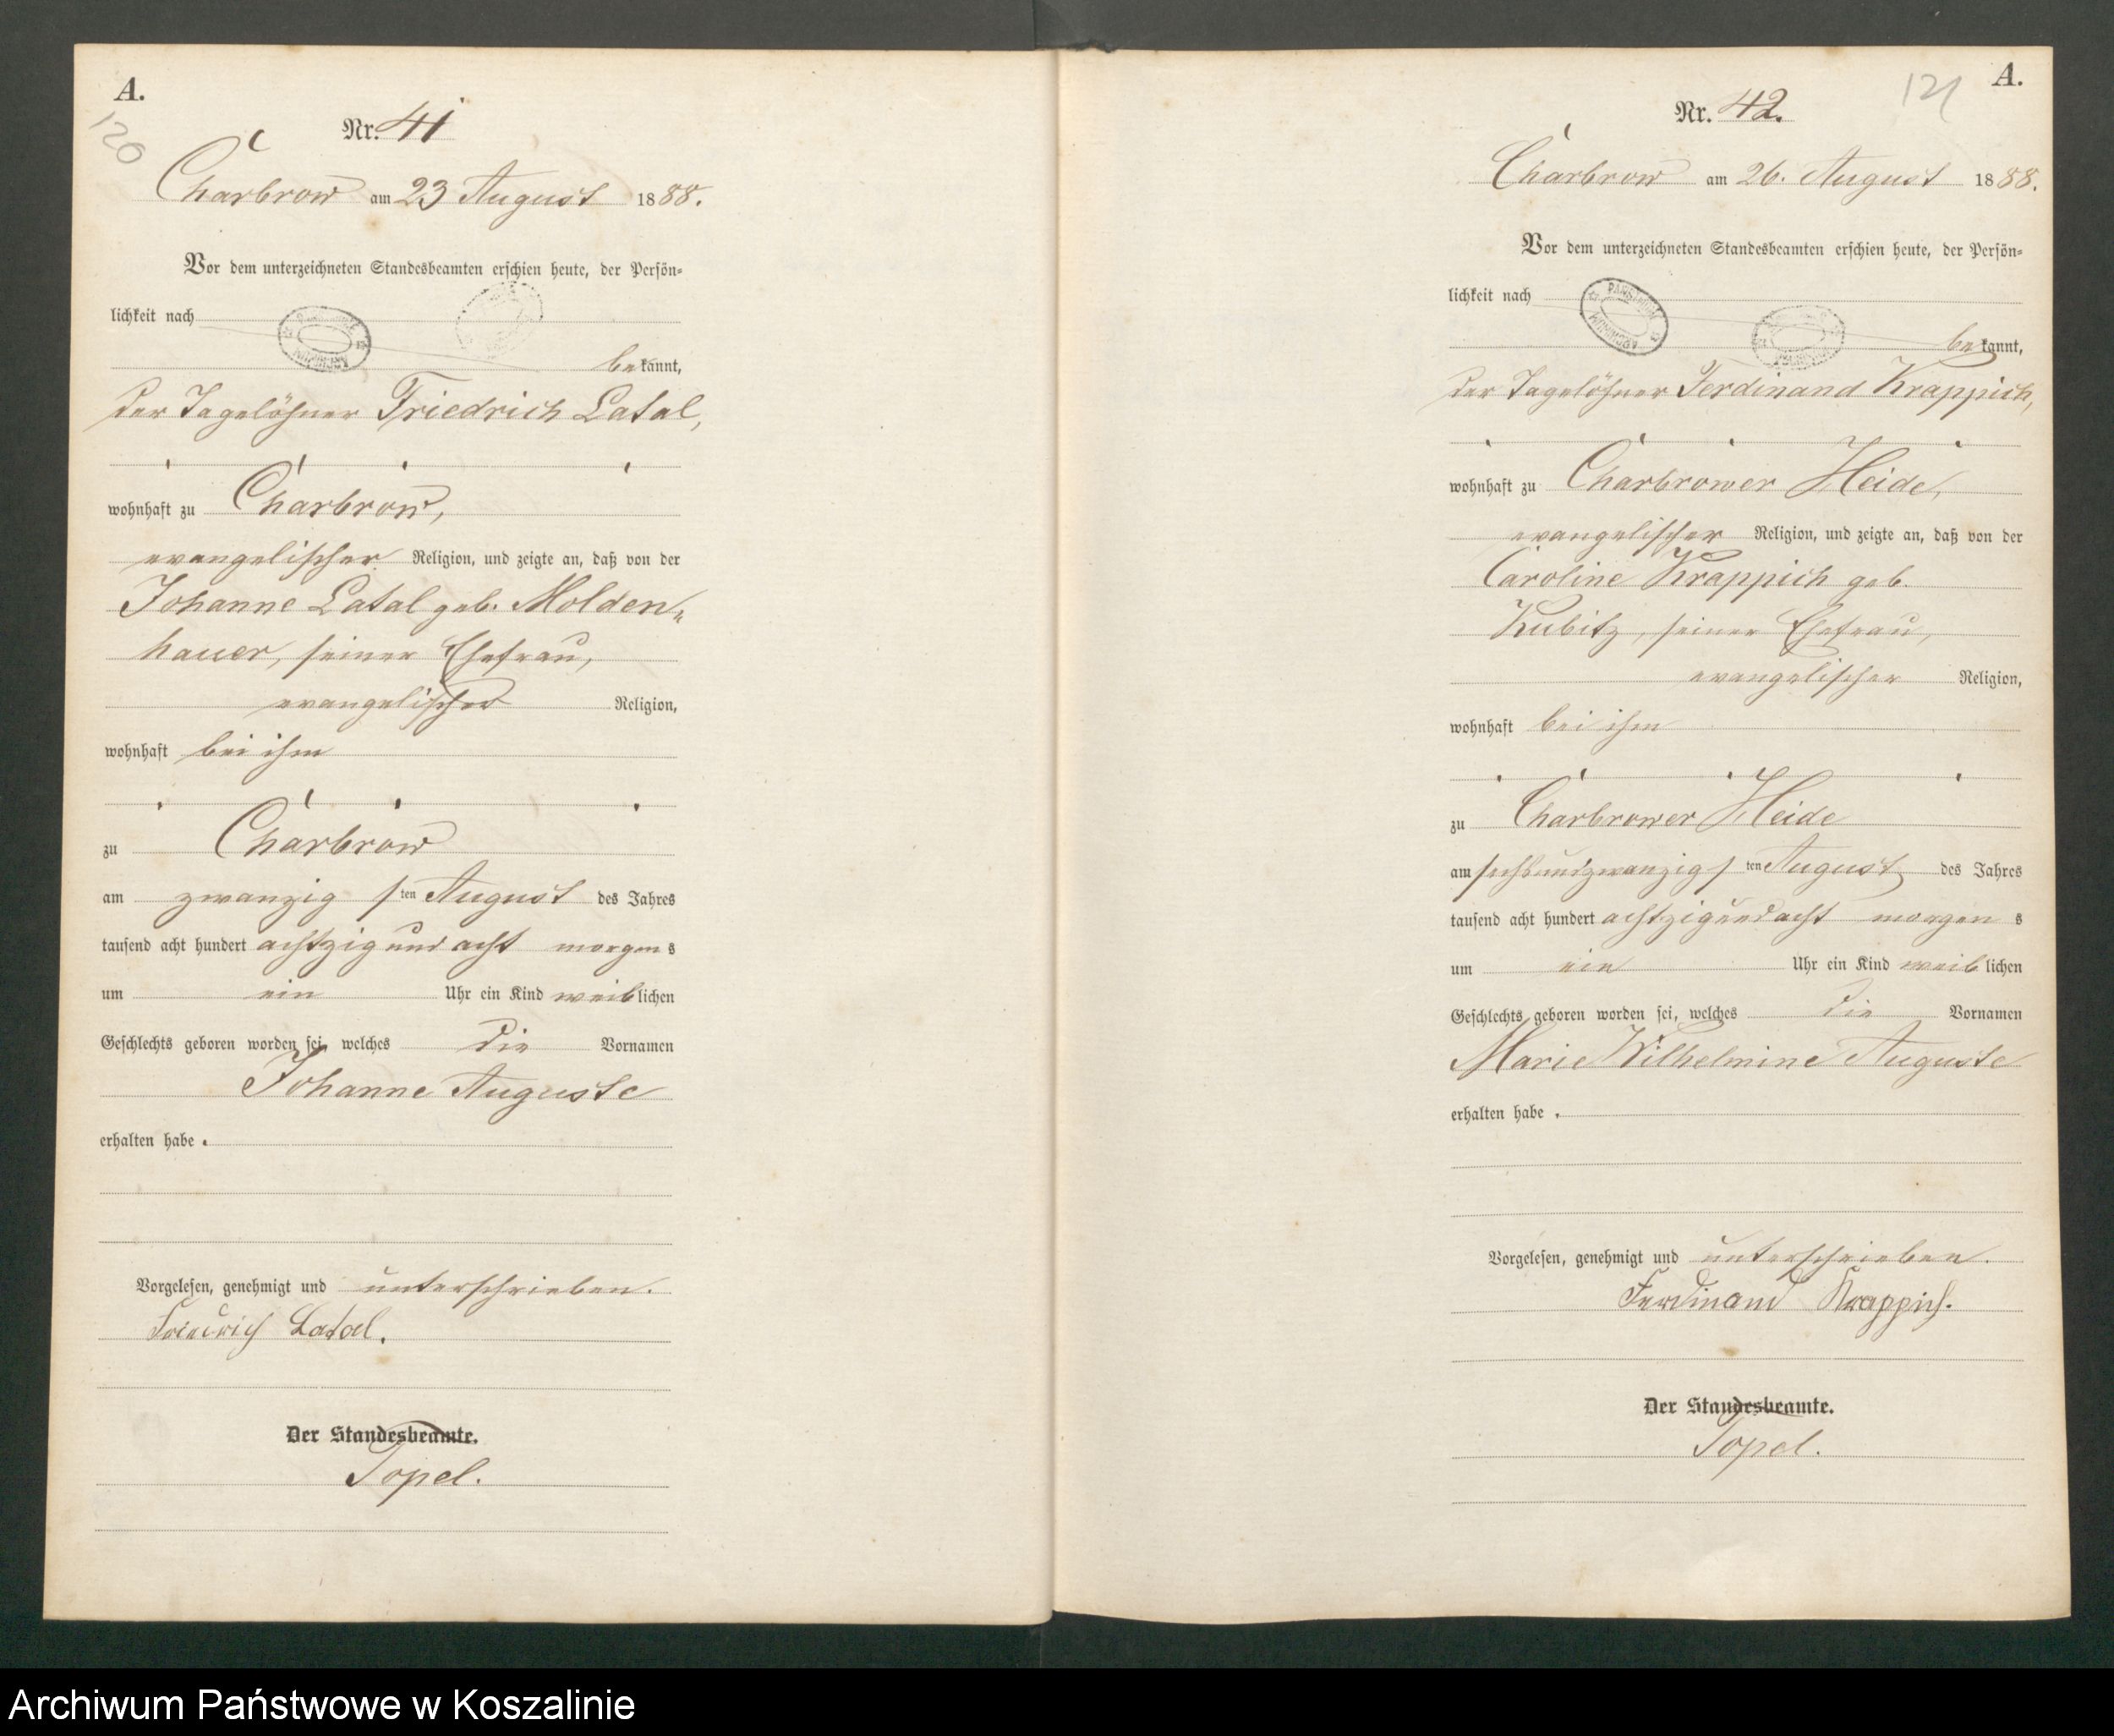 A.
120
Nr. 41
Charbrow am 23 August 1888.
Vor dem unterzeichneten Standesbeamten erschien heute, der Persön-
lichkeit nach
bekannt,
der Tagelöhner Friedrich Latal,
wohnhaft zu Charbrow,
evangelischer Religion, und zeigte an, daß von der
Johanne Latal geb. Molden-
hauer, seiner Ehefrau,
evangelischer Religion,
wohnhaft bei ihm
zu Charbrow
am zwanzigsten August des Jahres
tausend acht hundert achtzig und acht morgens
um ein Uhr ein Kind weiblichen
Geschlechts geboren worden sei, welches die Vornamen
Johanne Auguste
erhalten habe.
Vorgelesen, genehmigt und unterschrieben.
Friedrich Latal.
Der Standesbeamte.
Topel.
A.
121
Nr. 42.
Charbrow am 26. August 1888.
Vor dem unterzeichneten Standesbeamten erschien heute, der Persön-
lichkeit nach
bekannt,
der Tagelöhner Ferdinand Krappich,
wohnhaft zu Charbrower Heide,
evangelischer Religion, und zeigte an, daß von der
Caroline Krappich geb.
Kubitz, seiner Ehefrau,
evangelischer Religion,
wohnhaft bei ihm
zu Charbrower Heide
am sechsundzwanzigsten August des Jahres
tausend acht hundert achtzig und acht morgens
um ein Uhr ein Kind weiblichen
Geschlechts geboren worden sei, welches die Vornamen
Marie Wilhelmine Auguste
erhalten habe.
Vorgelesen, genehmigt und unterschrieben.
Ferdinand Krappich.
Der Standesbeamte.
Topel.
Archiwum Państwowe w Koszalinie